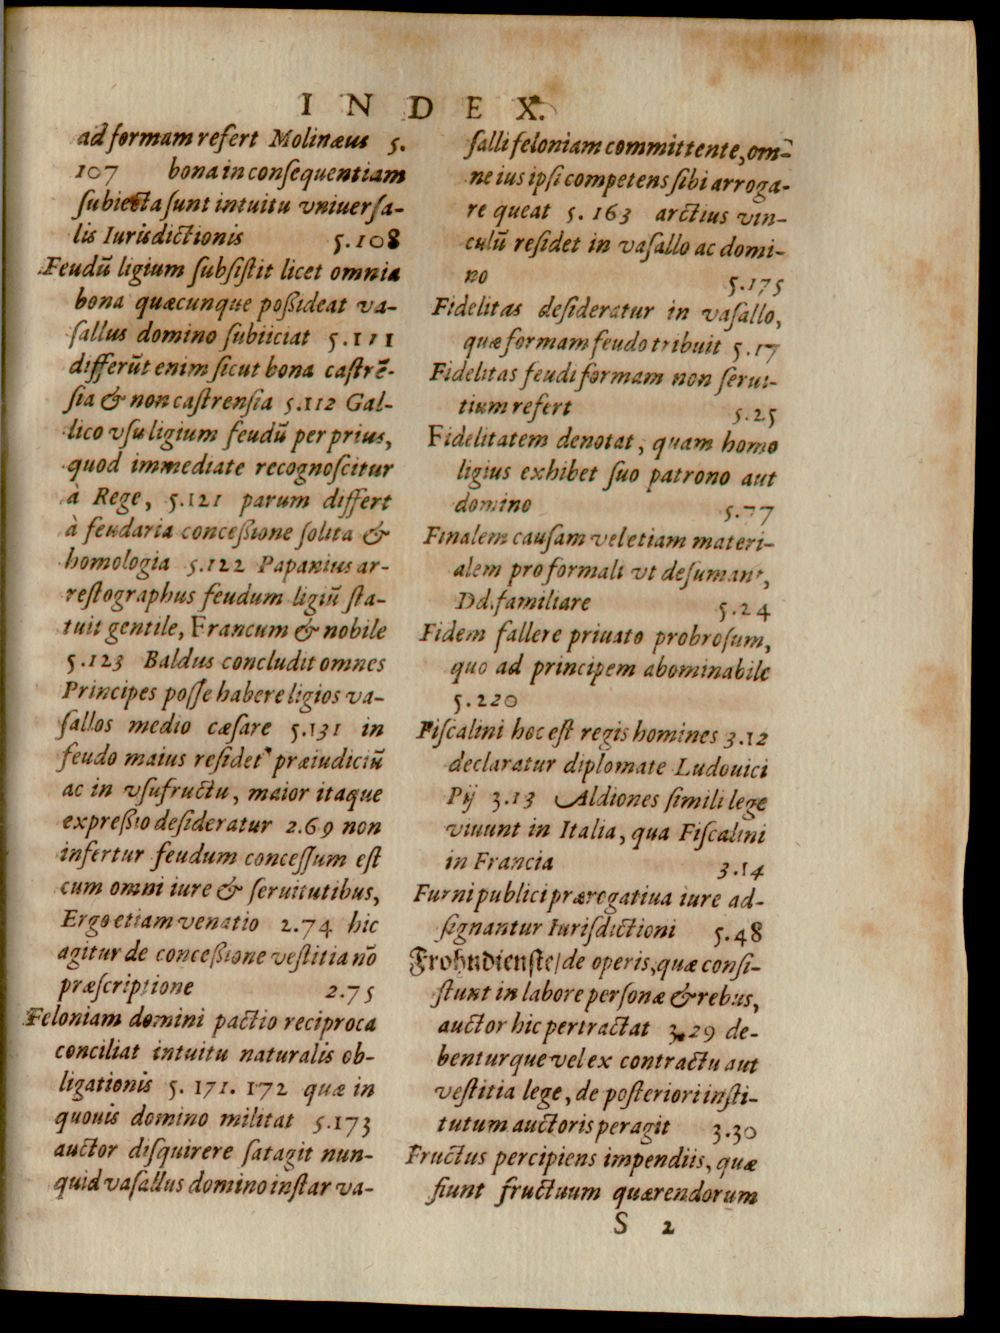 INDEX.
ad formam refert Molinæus 5.
107 bona in consequentiam
subiecta sunt intuitu vniuersa-
lis Iurisdictionis 5.108
Feudũ ligium subsistit licet omnia
bona quæcunque poßideat va-
sallus domino subiiciat 5.111
differũt enim sicut bona castrẽ-
sia & non castrensia 5.112 Gal-
lico vsu ligium feudũ per prius,
quod immediate recognoscitur
à Rege, 5.121 parum differt
à feudaria conceßione solita &
homologia 5.122 Papanius ar-
restographus feudum ligiũ sta-
tuit gentile, Francum & nobile
5.123 Baldus concludit omnes
Principes posse habere ligios va-
sallos medio cæsare 5.131 in
feudo maius residet præiudiciũ
ac in vsufructu, maior itaque
expreßio desideratur 2.69 non
infertur feudum concessum est
cum omni iure & seruitutibus,
Ergo etiam venatio 2.74 hic
agitur de conceßione vestitia nõ
præscriptione 2.75
Feloniam domini pactio reciproca
conciliat intuitu naturalis ob-
ligationis 5. 171. 172 quæ in
quouis domino militat 5.173
auctor disquirere satagit nun-
quid vasallus domino instar va-
salli feloniam committente, om̃-
ne ius ipsi competens sibi arroga-
re queat 5.163 arctius vin-
culũ residet in vasallo ac domi-
no 5.175
Fidelitas desideratur in vasallo,
quæ formam feudo tribuit 5.17
Fidelitas feudi formam non serui-
tium refert 5.25
Fidelitatem denotat, quam homo
ligius exhibet suo patrono aut
domino 5.77
Finalem causam vel etiam materi-
alem pro formali vt desumant,
Dd. familiare 5.24
Fidem fallere priuato probrosum,
quo ad principem abominabile
5.220
Fiscalini hoc est regis homines 3.12
declaratur diplomate Ludouici
Pij 3.13 Aldiones simili lege
viuunt in Italia, qua Fiscalini
in Francia 3.14
Furni publici prærogatiua iure ad-
signantur Iurisdictioni 5.48
Frohndienste/ de operis, quæ consi-
stunt in labore personæ & rebus,
auctor hic pertractat 3.29 de-
benturque vel ex contractu aut
vestitia lege, de posteriori insti-
tutum auctoris peragit 3.30
Fructus percipiens impendiis, quæ
fiunt fructuum quærendorum
S 2